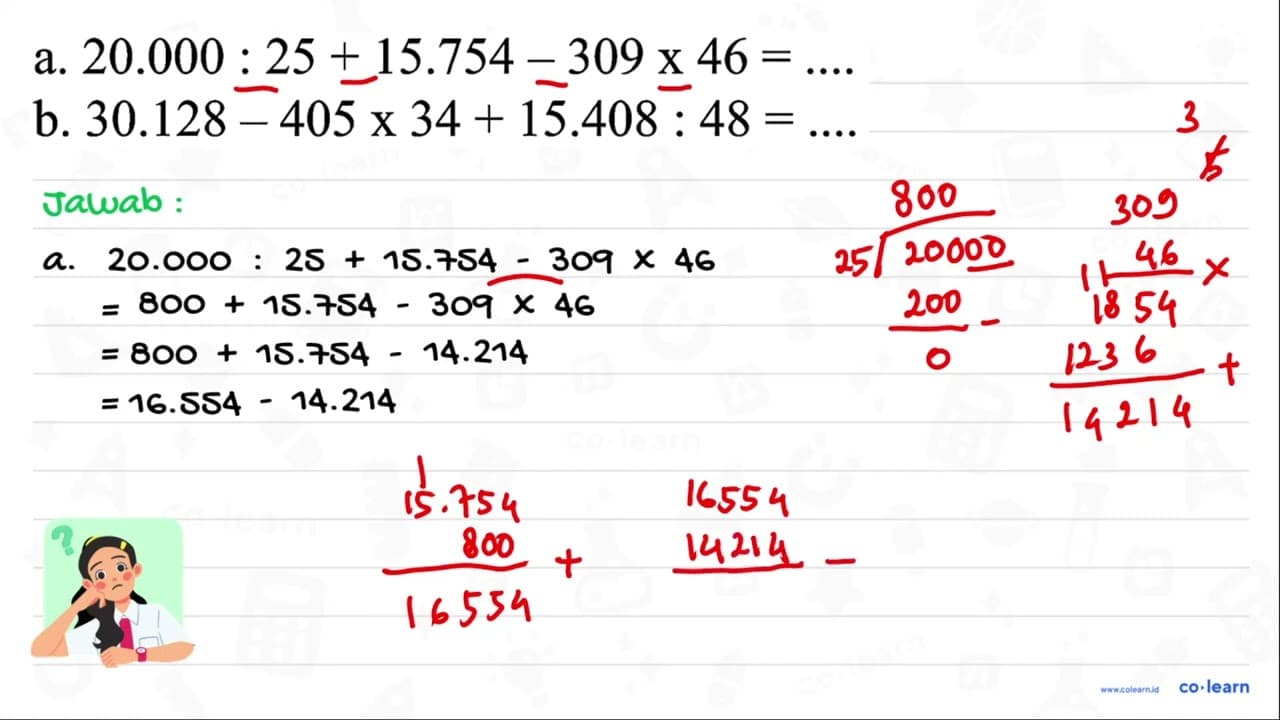 a. 20.000 : 25 + 15.754 – 309 x 46 = ....
b. 30.128 – 405 x 34 + 15.408 : 48 = ....
Jawab :
a. 20.000 : 25 + 15.754 - 309 x 46
= 800 + 15.754 - 309 x 46
= 800 + 15.754 - 14.214
= 16.554 - 14.214
800
25 20000
200 -
0
3
5
309
46 x
11
1854
1236 +
14214
1
15.754
800 +
16554
16554
14214 -
?
www.colearn.id co·learn